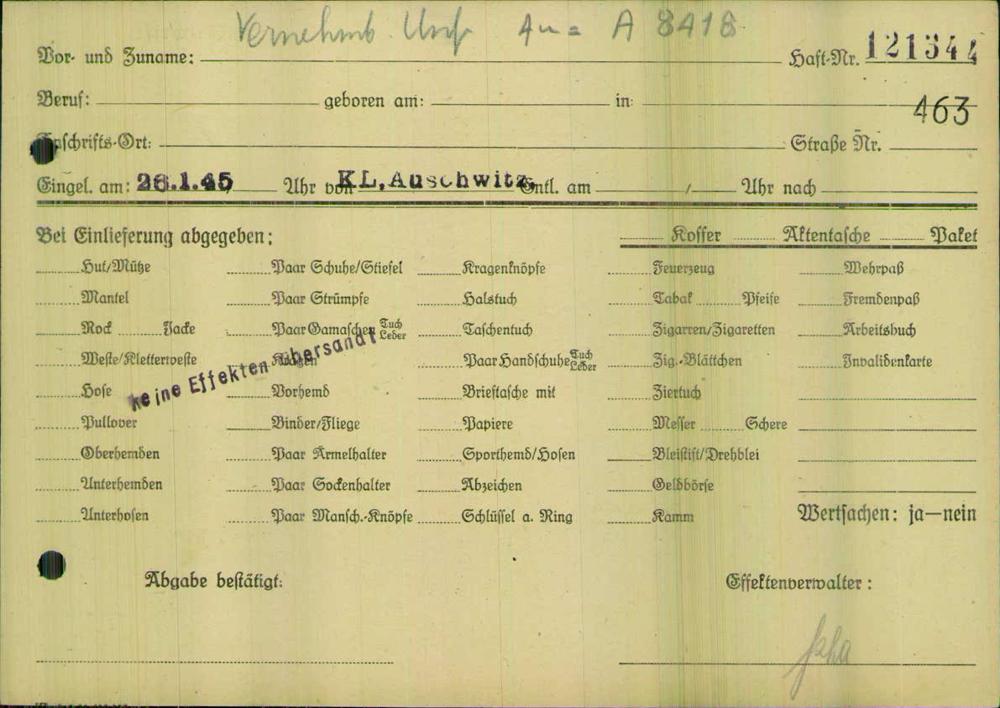 Au= A 8418
Vor- und Zuname: Haft-Nr. 121344
Beruf: geboren am: in: 463
Anschrifts-Ort: Straße Nr.
Eingel. am: 26.1.45 Uhr von KL, Auschwitz, Entl. am Uhr nach
Bei Einlieferung abgegeben: Koffer Aktentasche Paket
Hut/Mütze Paar Schuhe/Stiefel Kragenknöpfe Feuerzeug Wehrpaß
Mantel Paar Strümpfe Halstuch Tabak Pfeife Fremdenpaß
Rock Jacke Paar Gamaschen Tuch Leder Taschentuch Zigarren/Zigaretten Arbeitsbuch
Weste/Kletterweste Kragen Paar Handschuhe Tuch Leder Zig.-Blättchen Invalidenkarte
keine Effekten übersandt
Hose Vorhemd Brieftasche mit Ziertuch
Pullover Binder/Fliege Papiere Messer Schere
Oberhemden Paar Ärmelhalter Sporthemd/Hosen Bleistift/Drehblei
Unterhemden Paar Sockenhalter Abzeichen Geldbörse
Unterhosen Paar Mansch.-Knöpfe Schlüssel a. Ring Kamm Wertsachen: ja—nein
Abgabe bestätigt: Effektenverwalter: